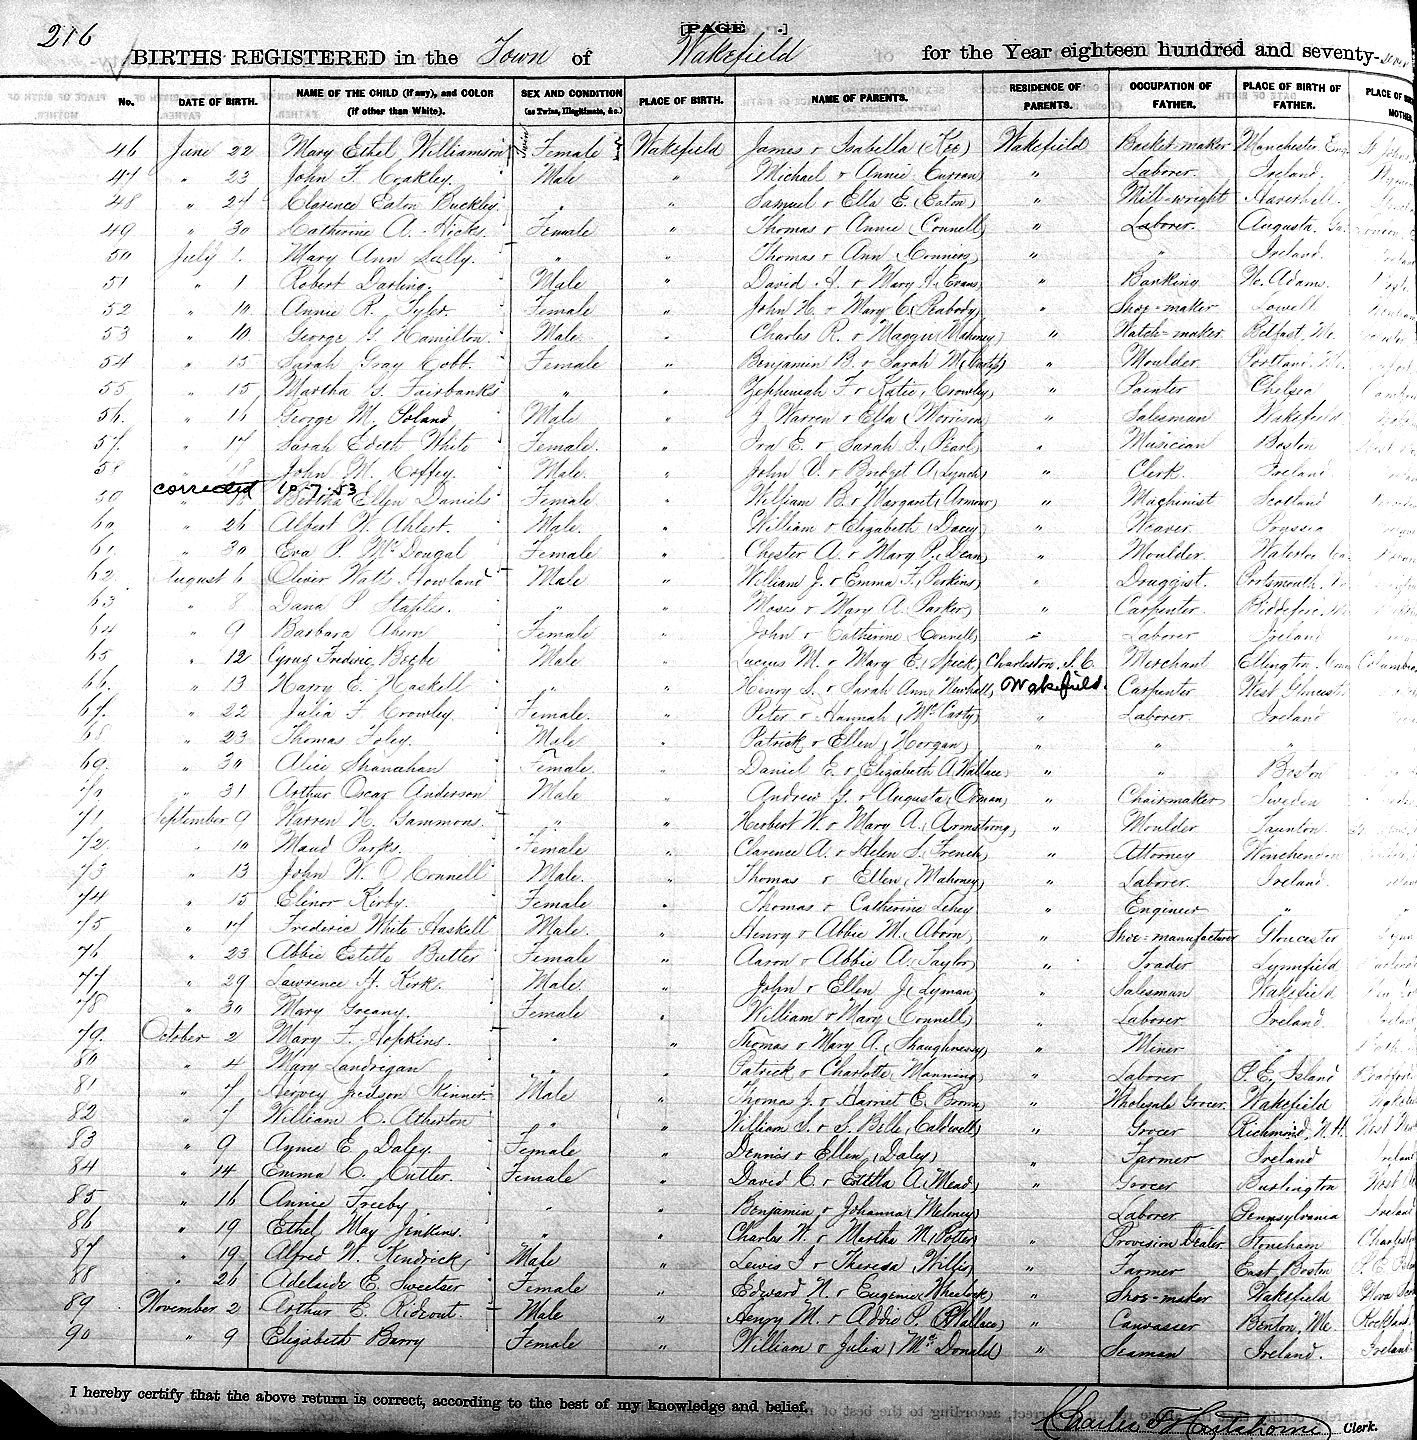 216
[PAGE .]
BIRTHS REGISTERED in the Town of Wakefield for the Year eighteen hundred and seventy-
No. DATE OF BIRTH. NAME OF THE CHILD (if any), and COLOR (if other than White). SEX AND CONDITION (as Twins, Illegitimate, &c.) PLACE OF BIRTH. NAME OF PARENTS. RESIDENCE OF PARENTS. OCCUPATION OF FATHER. PLACE OF BIRTH OF FATHER. PLACE OF MOTHER.
46 June 22 Mary Ethel Williamson Twin Female Wakefield James & Isabella (Kee) Wakefield Basket-maker Manchester Eng. St Johns
47 " 23 John F. Coakley. Male " Michael & Annie Curran) " Laborer. Ireland.
48 " 24 Clarence Eaton Buckley. " " Samuel & Ella E. (Eaton) " Mill-wright Haverhill
49 " 30 Catherine A. Hicks. Female " Thomas & Annie (Connell) " Laborer. Augusta, Ga.
50 July 1. Mary Ann Lully. " " Thomas & Ann (Conners) " " Ireland.
51 " 1 Robert Darling. Male " David H. & Mary H. Evans) " Banking No. Adams.
52 " 10 Annie R. Tyler. Female " John H. & Mary C. (Peabody) " Shoe-maker Lowell
53 " 10 George G. Hamilton. Male " Charles R. & Maggie (Mahoney) " Watch-maker Belfast, Me.
54 " 15 Sarah Gray Cobb. Female " Benjamin B. & Sarah M. " Moulder Portland, Me.
55 " 15 Martha G. Fairbanks " " Zepheniah F. & Katie (Crowley) " Painter Chelsea
56. " 16 George M. Poland Male " J. Warren & Ella (Morrison) " Salesman Wakefield
57. " 17 Sarah Edith White Female. " Ira E. & Sarah J. (Pearl) " Musician Boston
58 " 18 John M. Coffey. Male. " John V. & Bridget A. (Lynch) " Clerk. Ireland
corrected 10-7-53
59 " Bertha Ellen Daniels Female " William B. & Margaret (Armour) " Machinist Scotland
60 " 26 Albert W. Ahlert. Male. " William & Elizabeth (Dacey) " Weaver Prussia
61. " 30 Eva P. McDougal Female " Chester A. & Mary P. (Dean) " Moulder. Waterloo
62. August 6 Oliver Watts Howland Male " William J. & Emma F. (Perkins) " Druggist. Portsmouth,
63 " 8 Dana P. Staples. " " Moses & Mary A. (Parker) " Carpenter Biddeford, Me.
64 " 9 Barbara Ahern Female " John & Catherine (Connell) " Laborer Ireland
65 " 12 Cyrus Fredric Beebe Male " Lucius M. & Mary E. (Speck) Charleston, S.C. Merchant Ellington, Conn Columbia
66. " 13 Harry E. Haskell " " Henry S. & Sarah Ann Newhall) Wakefield. Carpenter West Gloucester
67. " 22 Julia F. Crowley. Female. " Peter & Hannah (McCarty) " Laborer. Ireland
68 " 23 Thomas Foley. Male " Patrick & Ellen (Horgan) " " "
69. " 30 Alice Shanahan Female. " Daniel E. & Elizabeth A. Wallace) " " Boston
70 " 31 Arthur Oscar Anderson Male " Andrew G. & Augusta (Orman) " Chairmaker Sweden
71 September 9 Warren H. Gammons. " " Herbert W. & Mary A. (Armstrong) " Moulder Taunton
72. " 10 Maud Parks. Female " Clarence A. & Helen S. (French) " Attorney Winchendon
73 " 13 John W. O'Connell Male. " Thomas & Ellen (Mahoney) " Laborer. Ireland
74 " 15 Elinor Kirby. Female " Thomas & Catherine Lehey " Engineer "
75 " 17 Frederic White Haskell Male. " Henry & Abbie M. (Aborn) " Shoe-manufacturer Gloucester
76 " 23 Abbie Estelle Butler Female " Aaron & Abbie A. (Taylor) " Trader Lynnfield
77. " 29 Lawrence H. Kirk. Male " John & Ellen J. (Lyman) " Salesman Wakefield
78 " 30 Mary Greany. Female " William & Mary (Connell) " Laborer Ireland
79. October 2 Mary F. Hopkins. " " Thomas & Mary A. (Shaughnessy) " Miner "
80 " 4 Mary Landrigan " " Patrick & Charlotte (Manning) " Laborer P. E. Island
81 " 7 Hervey Judson Skinner Male " Thomas J. & Harriet E. (Brown) " Wholesale Grocer. Wakefield Wakefield
82 " 7 William C. Atherton " " William S. & S. Belle (Caldwell) " Grocer Richmond, N. H.
83 " 9 Aymie E. Daley. Female " Dennis & Ellen (Daley) " Farmer Ireland Ireland
84 " 14 Emma C. Cutler. Female " David C. & Estella A. (Mead) " Grocer Burlington
85 " 16 Annie Freeby " " Benjamin & Johanna (Meloney) " Laborer Pennsylvania Ireland
86 " 19 Ethel May Jenkins. " " Charles W. & Martha M. (Potter) " Provision Dealer Stoneham
87 " 19 Alfred W. Kendrick, Male " Lewis I. & Theresa (Willis) " Farmer East Boston
88 " 26 Adelaide E. Sweetser Female " Edward N. & Eugenie (Wheelock) " Shoe-maker Wakefield Nova
89 November 2 Arthur E. Rideout. Male " Henry M. & Addie P. (Wallace) " Canvasser Benton, Me. Rockland
90 " 9 Elizabeth Barry Female " William & Julia (McDonald) " Seaman Ireland. Ireland
I hereby certify that the above return is correct, according to the best of my knowledge and belief.
Charles F. Hartshorne Clerk.